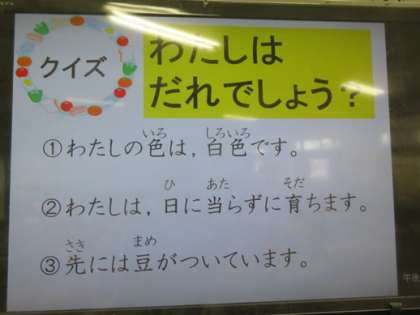 クイズ
わたしは
だれでしょう？
①わたしの色は，白色です。
②わたしは，日に当らずに育ちます。
③先には豆がついています。
いろ しろいろ
ひ あた そだ
さき まめ
午後